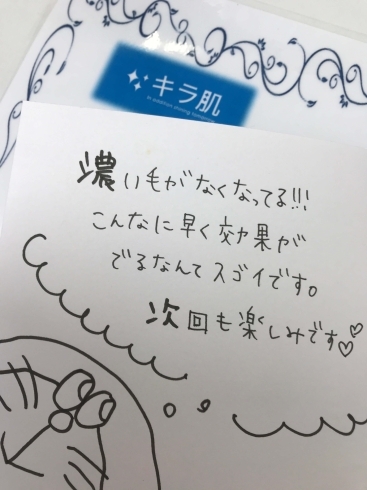 キラ肌
濃い毛がなくなってる!!!
こんなに早く効果が
でるなんてスゴイです。
次回も楽しみです♡♡